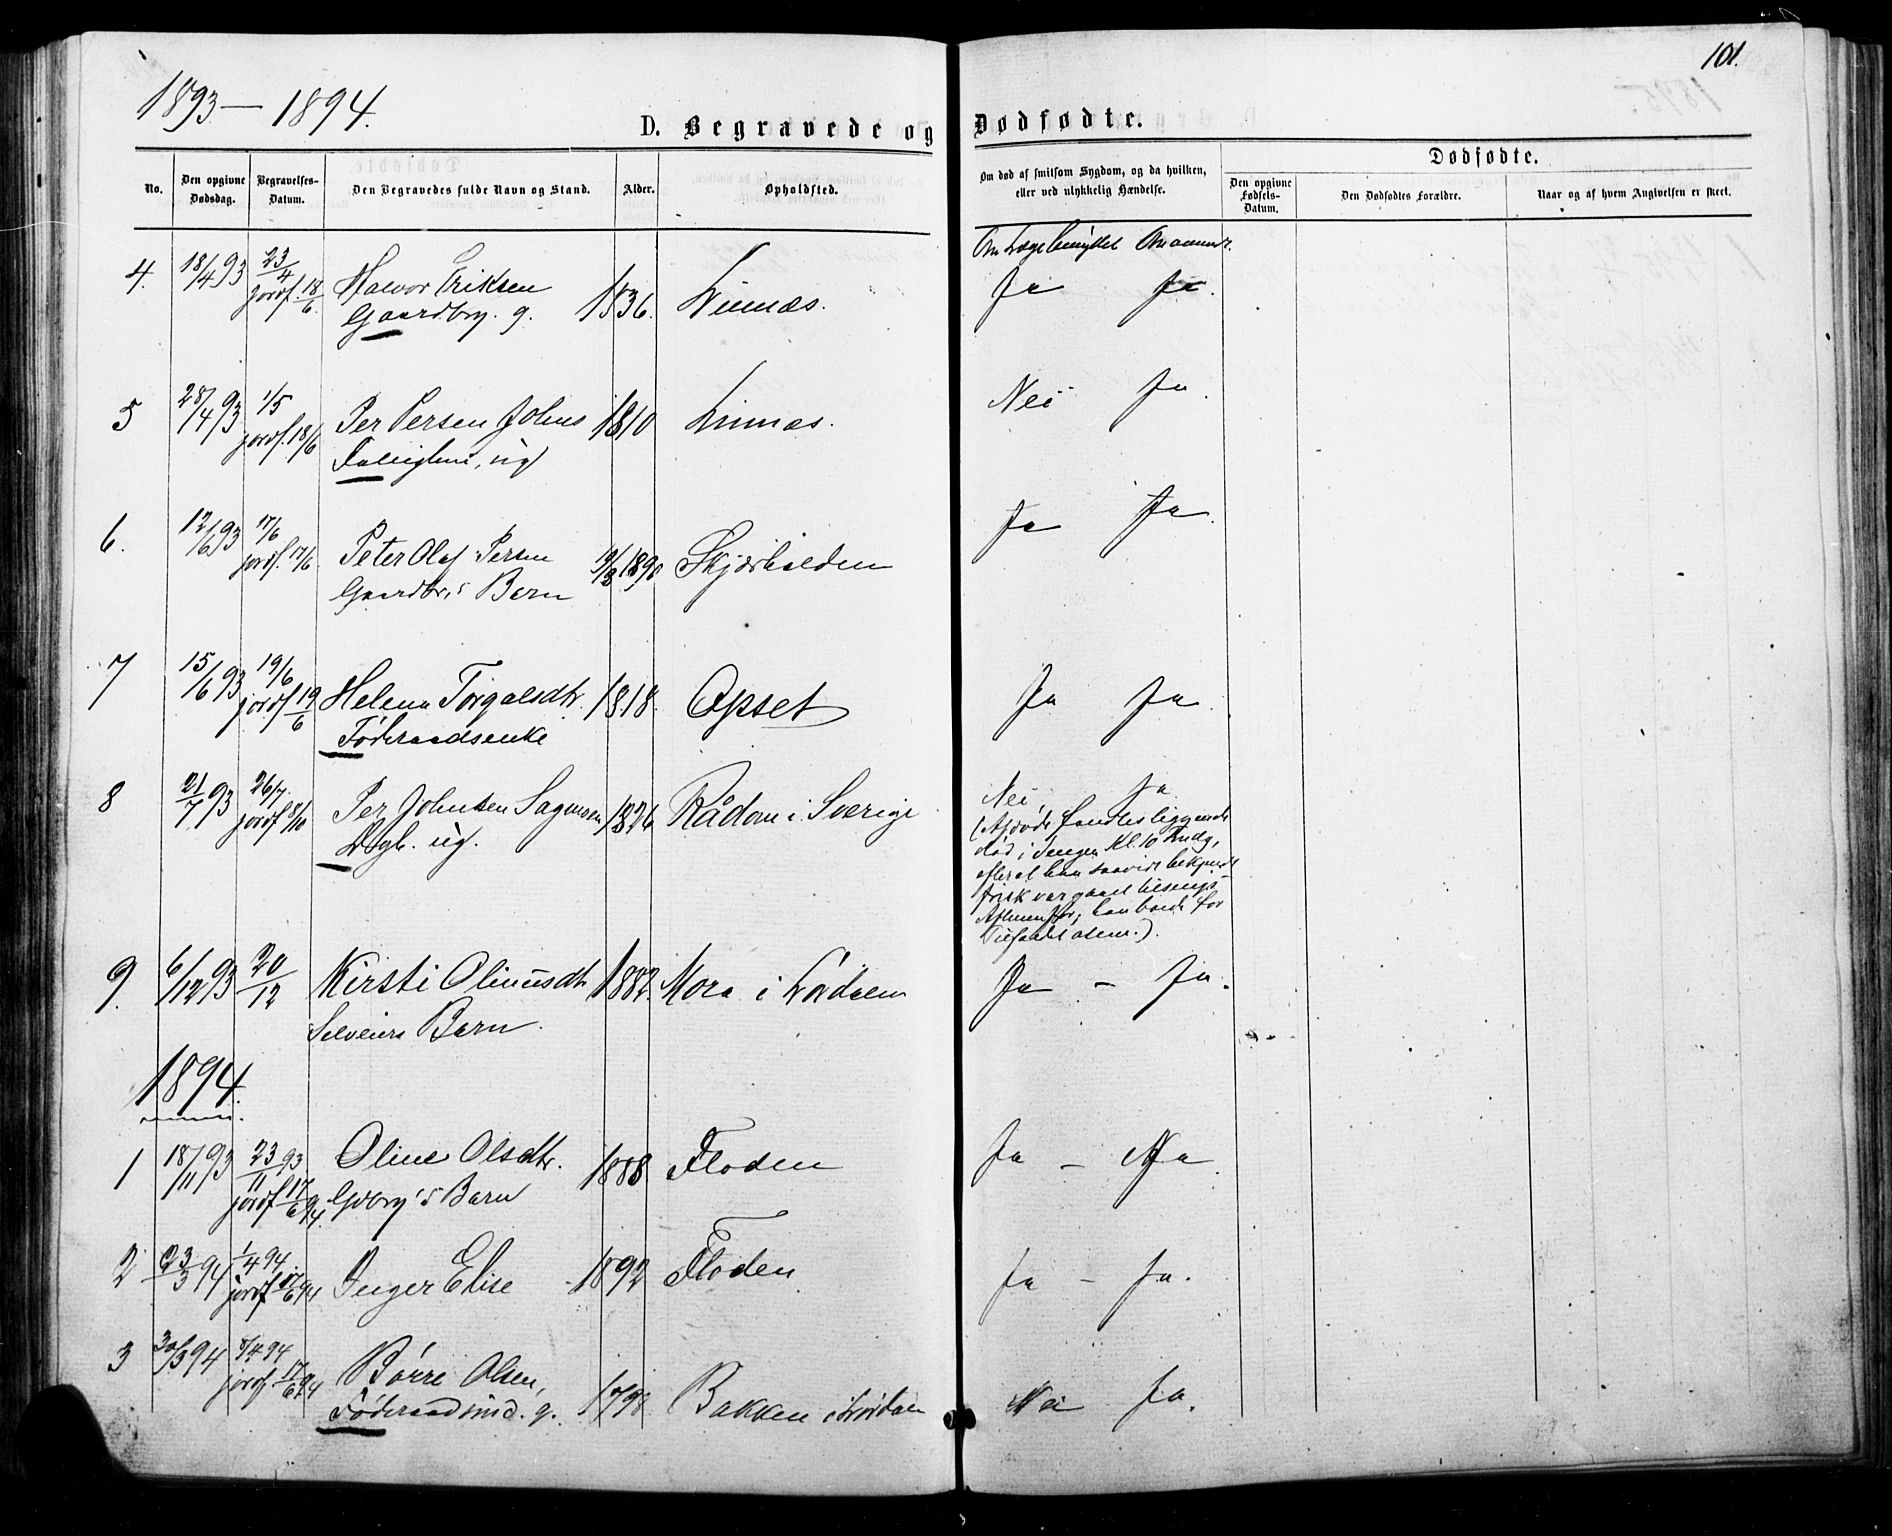 101.
1893 — 1894.
D. Begravede og Dødfødte.
No.
Den opgivne Dødsdag.
Begravelses-Datum.
Den Begravedes fulde Navn og Stand.
Alder.
Opholdsted.
Om død af smitsom Sygdom, og da hvilken, eller ved ulykkelig Hændelse.
Dødfødte.
Den opgivne Fødsels-Datum.
Den Dødfødtes Forældre.
Naar og af hvem Angivelsen er skeet.
4. 18/4 93 23/4 Halvor Eriksen 1836. Linnæs. Ja Ja.
jordf. 18/6. Gaardbrg. g.
5 28/4 93 1/5 Per Persen Johns 1810 Linnæs. Nei Ja.
jordf. 18/6 ug
6. 12/6 93 17/6 Peter Olaf Persen 1890 Ja Ja.
jordf. 17/6 Gaardbr.s Barn
7 15/6 93 19/6 Helena Torgalsdtr. 1818. Opset Ja Ja.
jordf 19/6 Føderaadsenke
8 21/7 93 26/7. Per Johnsen 1826 Rådom i Sverige Nei, Ja
jordf 8/10 ug. (Afdøde fandtes liggende
død i Sengen Kl. 10
efterat han saavidt bekjendt
frisk var gaaet tilsengs
9. 6/12 93 20/12 Kirsti Olinusdtr 1882. Mora i Lørdalen Ja – Ja.
Selveiers Barn.
1894.
1 18/11 93 23/11 93 Oline Olsdtr. 1888 Floden Ja – Ja.
jordf 17/6 94. Gdbrg's Barn
2 23/3 94 1/4 94. Inger Elise 1892 Floden Ja – Ja.
jordf 17/6 94
3 30/3 94 8/4 94 Børre Olsen, 1798. Bakken i Lørdalen Nei Ja.
jordf 17/6 94 Føderaadsmd. g.